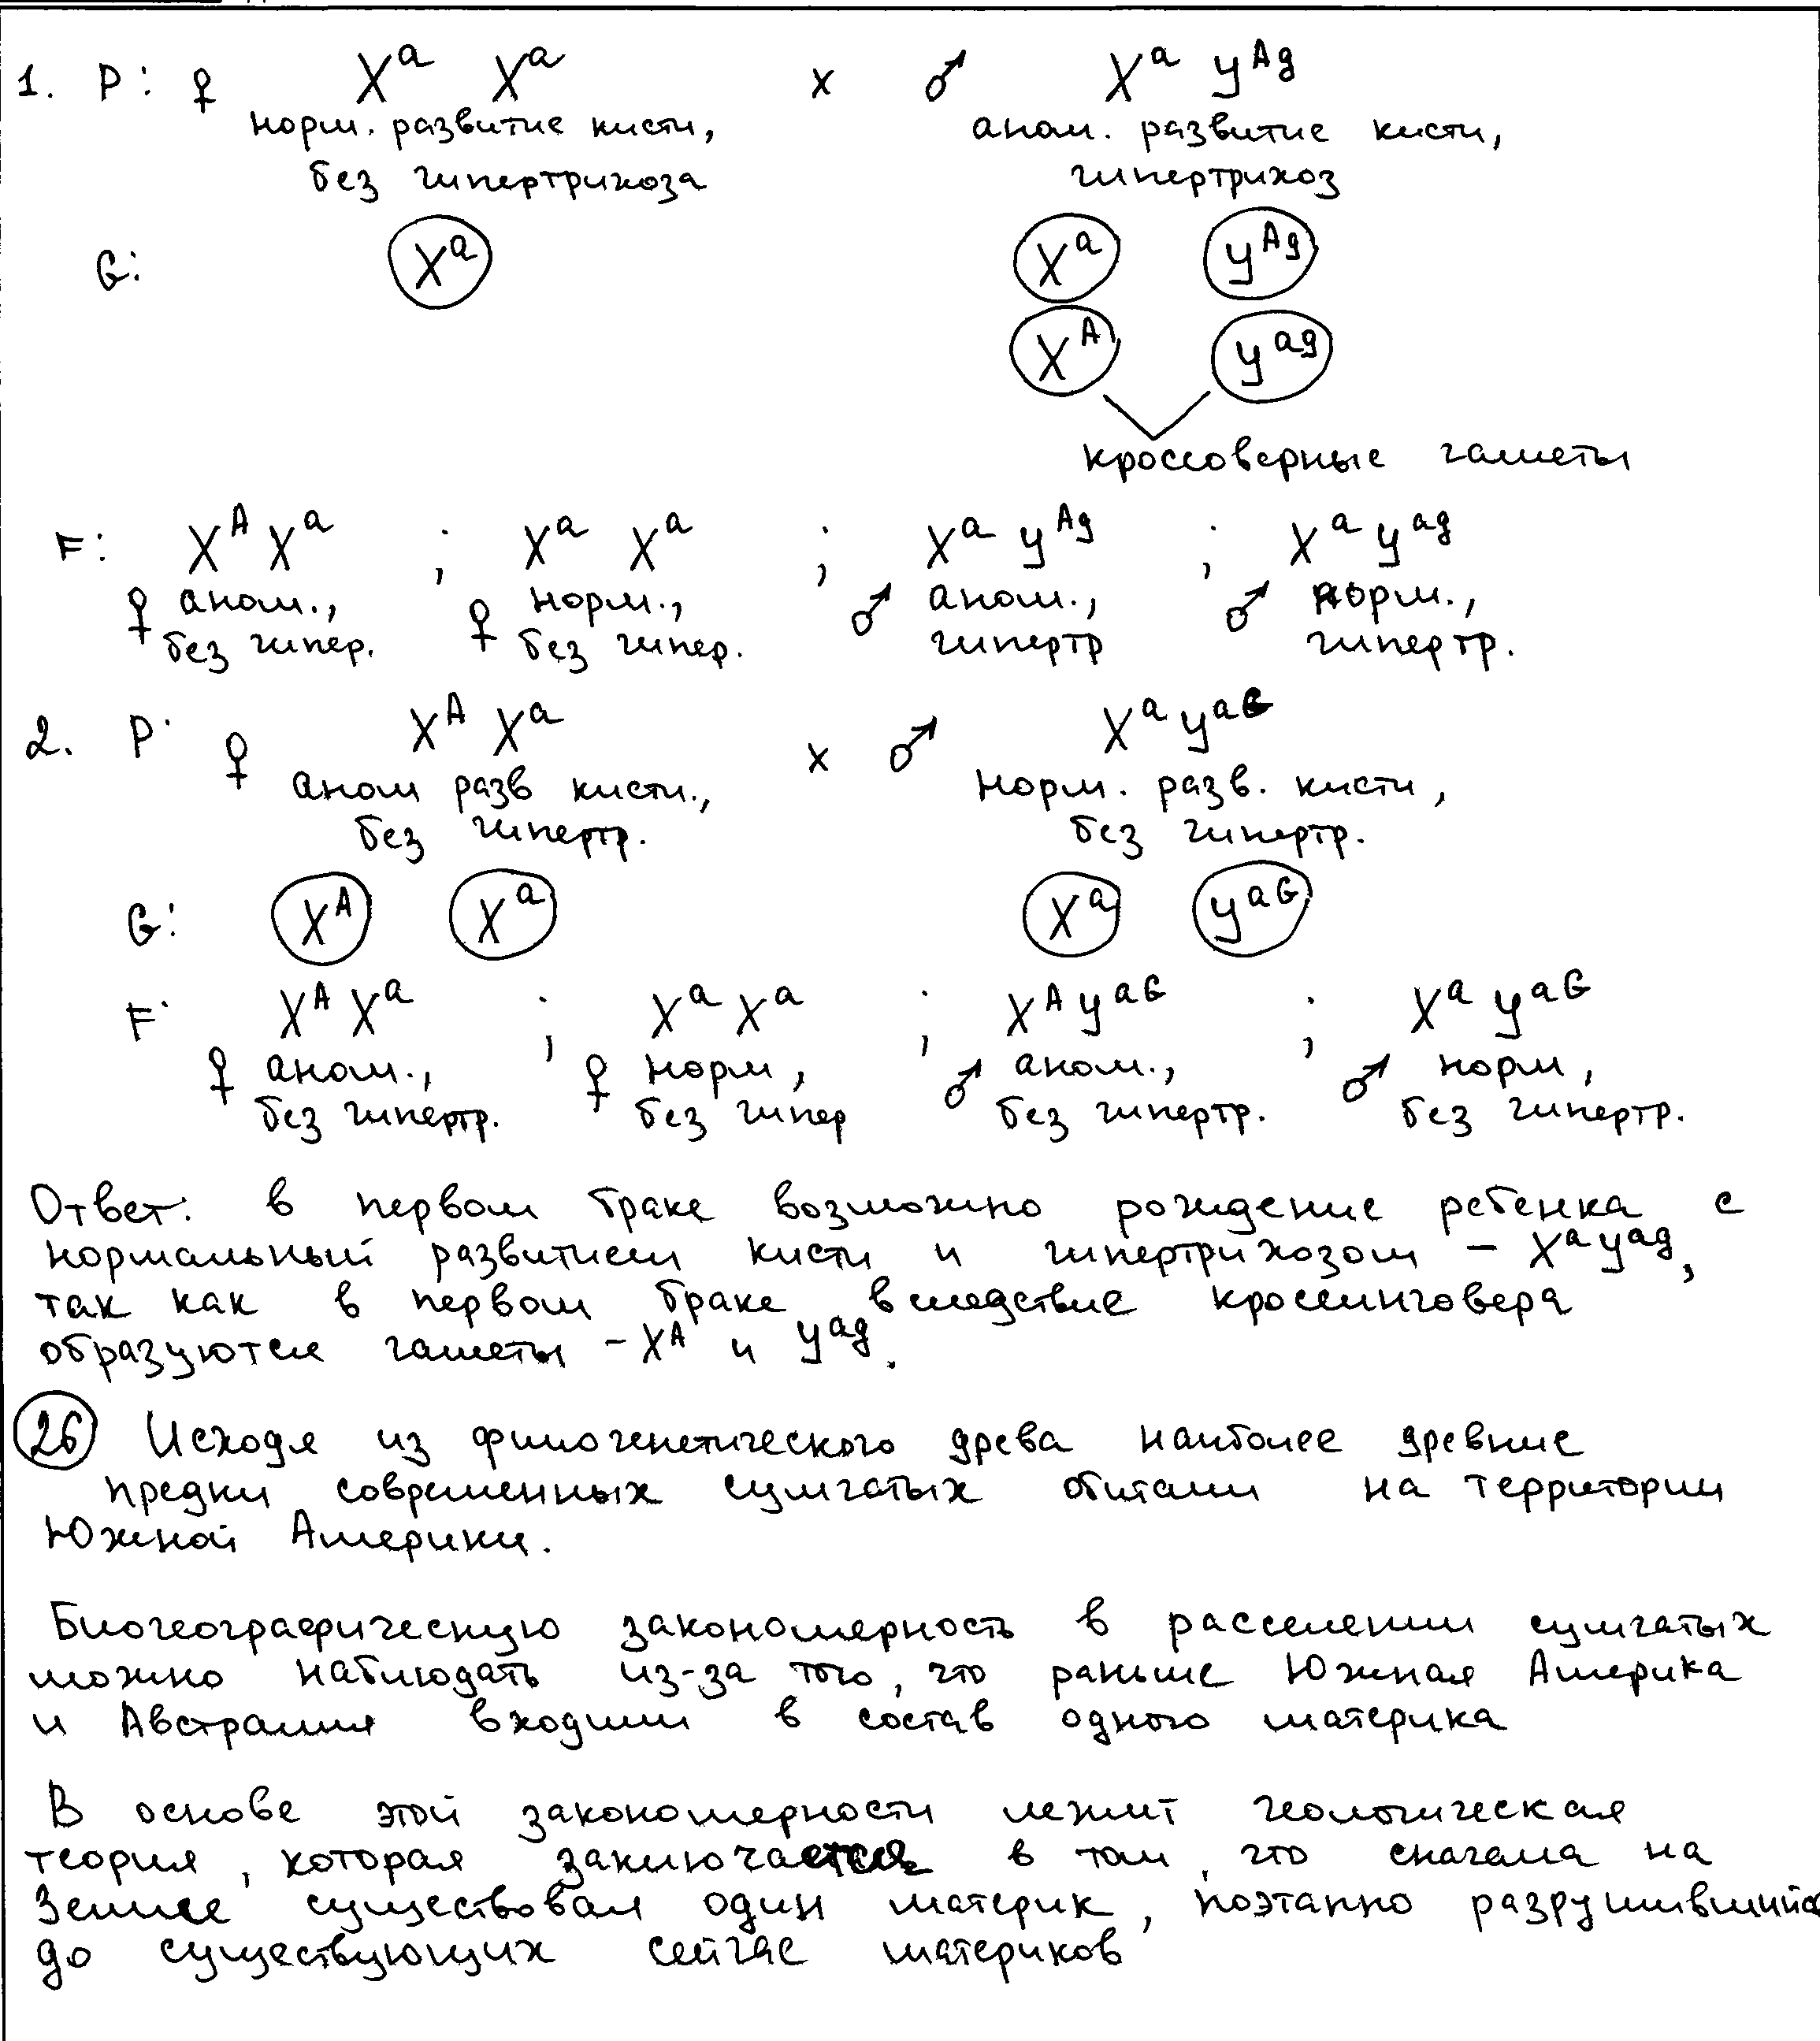 1. P: ♀ Xᵃ Xᵃ x ♂ Xᵃ Yᴬᵍ
норм. развитие кисти, аном. развитие кисти,
без гипертрихоза гипертрихоз
G: Xᵃ Xᵃ Yᴬᵍ
Xᴬ Yᵃᵍ
кроссоверные гаметы
F: XᴬXᵃ ; Xᵃ Xᵃ ; Xᵃ Yᴬᵍ ; XᵃYᵃᵍ
♀ аном., ♀ норм., ♂ аном., ♂ норм.,
без гипер. без гипер. гипертр гипертр.
2. P ♀ Xᴬ Xᵃ x ♂ XᵃYᵃᴳ
аном разв кисти., норм. разв. кисти,
без гипертр. без гипертр.
G: Xᴬ Xᵃ Xᵃ Yᵃᴳ
F XᴬXᵃ ; XᵃXᵃ ; XᴬYᵃᴳ ; XᵃYᵃᴳ
♀ аном., ♀ норм, ♂ аном., ♂ норм,
без гипертр. без гипер без гипертр. без гипертр.
Ответ: в первом браке возможно рождение ребенка с
нормальный развитием кисти и гипертрихозом – XᵃYᵃᵍ,
так как в первом браке вследствие кроссинговера
образуются гаметы – Xᴬ и Yᵃᵍ.
26 Исходя из филогенетического древа наиболее древние
предки современных сумчатых обитали на территории
Южной Америки.
Биогеографическую закономерность в расселении сумчатых
можно наблюдать из-за того, что раньше Южная Америка
и Австралия входили в состав одного материка
В основе этой закономерности лежит геологическая
теория, которая заключается в том, что сначала на
Земле существовал один материк, поэтапно разрушившийся
до существующих сейчас материков